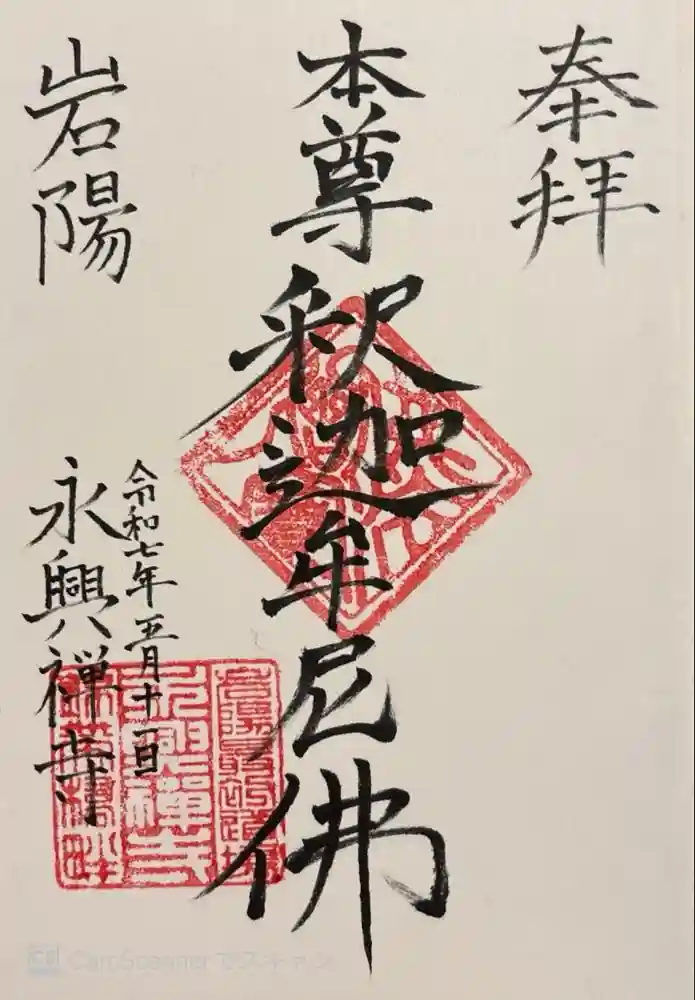 奉拝
本尊釈迦牟尼佛
令和七年五月十一日
岩陽
永興禅寺
永興禪寺
CamScanner でスキャン